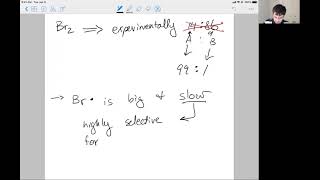 Br₂ ⟹ experimentally 14:86
A : B
99 : 1
→ Br• is big & slow
highly selective
for